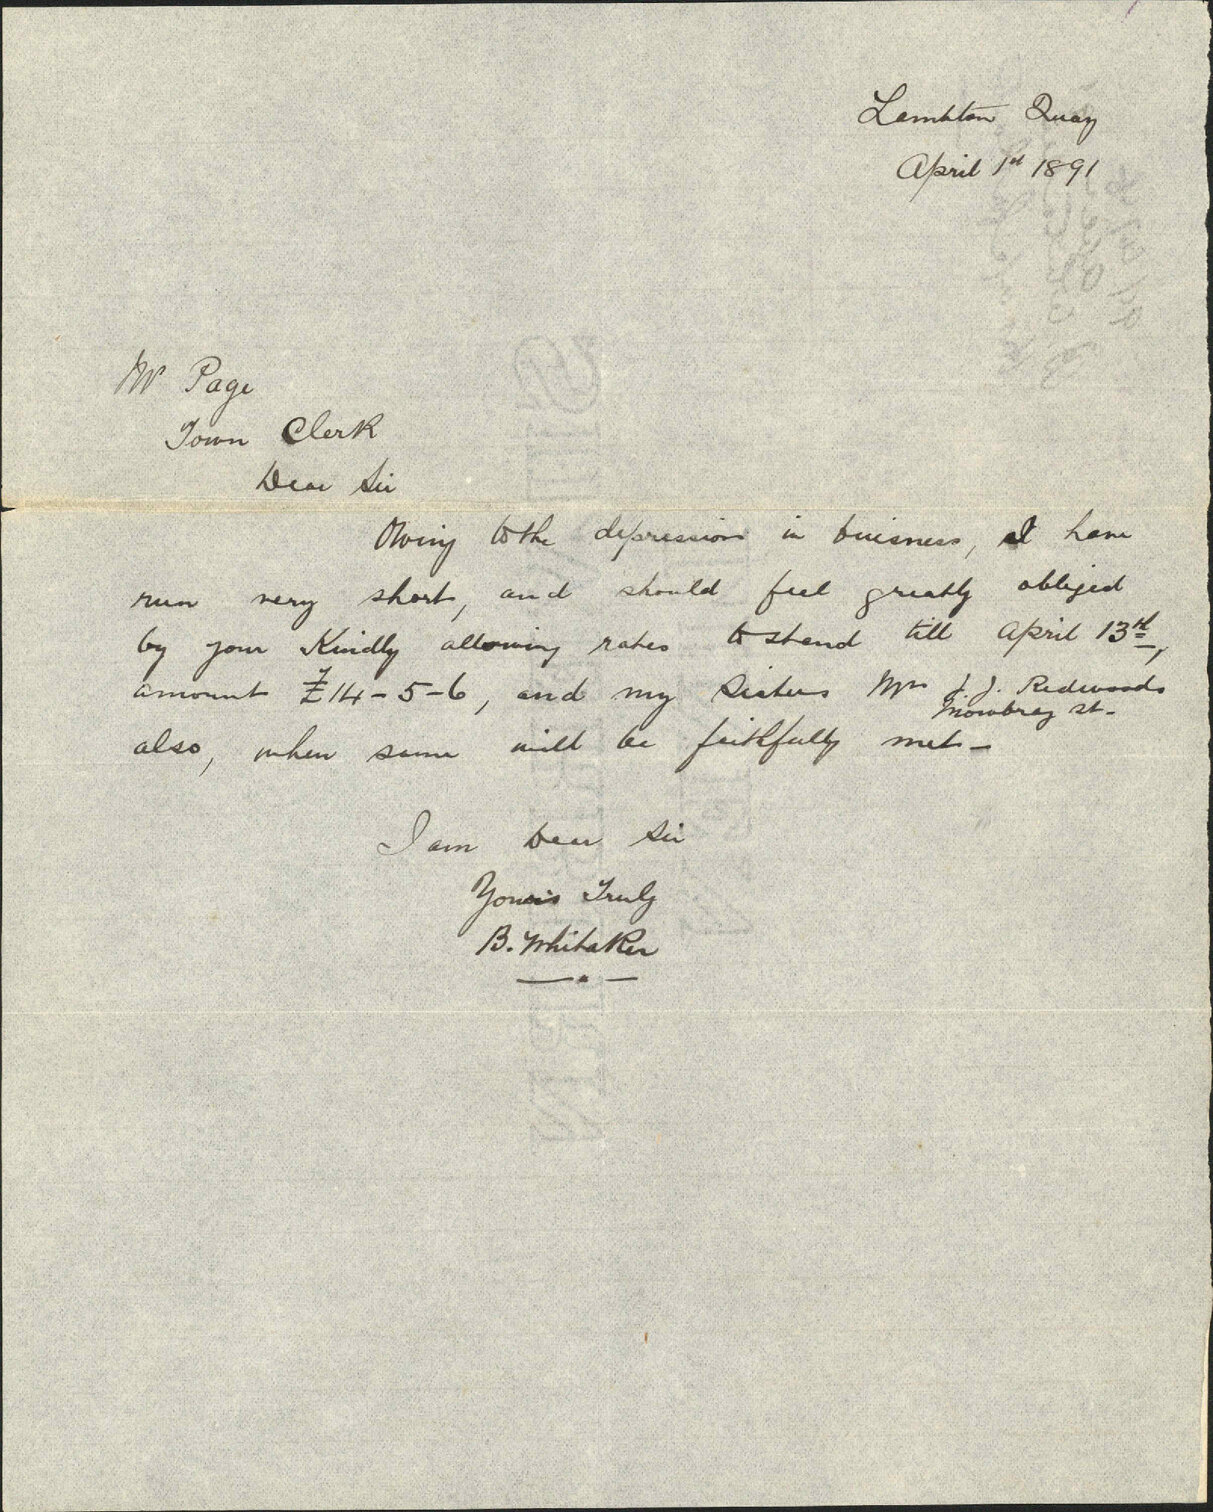 Lambton Quay
April 1st 1891
Mr Page
Town Clerk
Dear Sir
Owing to the depression in buisness, I have
run very short, and should feel greatly obliged
by your Kindly allowing rates to stand till April 13th,
amount £14-5-6, and my Sisters Mrs J. J. Redwoods
Mowbray st-
also, when same will be faithfully met-
I am Dear Sir
Yours Truly
B. Whitaker